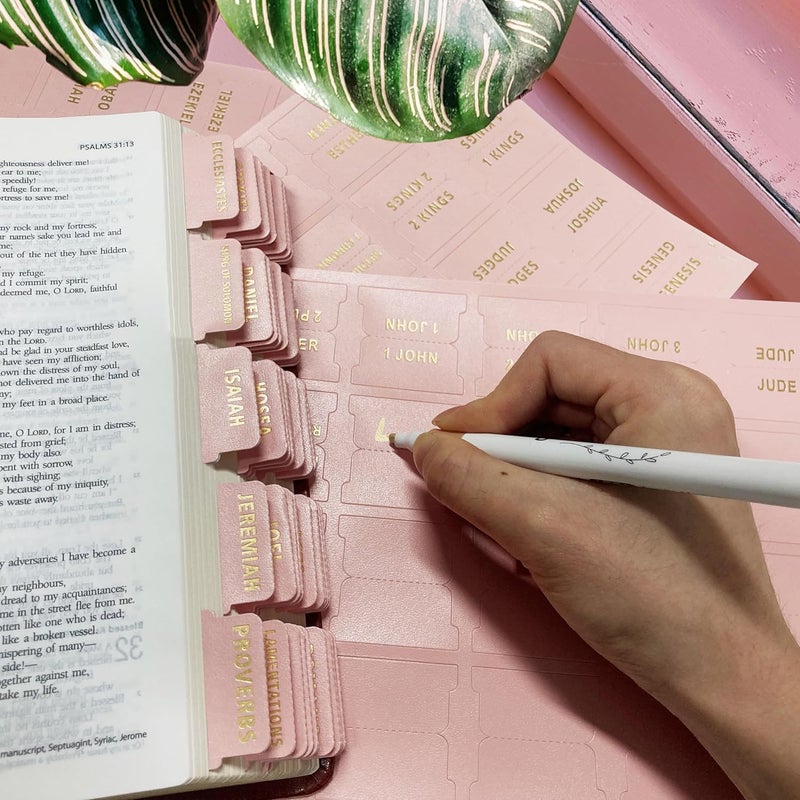 PSALMS 31:13
righteousness deliver me!
ear to me;
speedily!
refuge for me,
fortress to save me!
my rock and my fortress;
name's sake you lead me and
me;
out of the net they have hidden
my refuge.
I commit my spirit;
redeemed me, O LORD, faithful
who pay regard to worthless idols,
in the LORD.
and be glad in your steadfast love,
have seen my affliction;
the distress of my soul,
not delivered me into the hand of
my feet in a broad place.
me, O LORD, for I am in distress;
wasted from grief;
my body also.
spent with sorrow,
with sighing;
because of my iniquity,
waste away.
my adversaries I have become a
my neighbours,
dread to my acquaintances;
me in the street flee from me.
like one who is dead;
like a broken vessel.
whispering of many—
side!—
together against me,
take my life.
manuscript, Septuagint, Syriac, Jerome
ECCLESIASTES
SONG OF SOLOMON
DANIEL
ISAIAH
HOSEA
JEREMIAH
JOEL
PROVERBS
LAMENTATIONS
EZEKIEL
EZEKIEL
1 KINGS
2 KINGS
2 KINGS
JOSHUA
JOSHUA
JUDGES
GENESIS
GENESIS
1 JOHN
1 JOHN
JOHN
3 JOHN
JUDE
JUDE